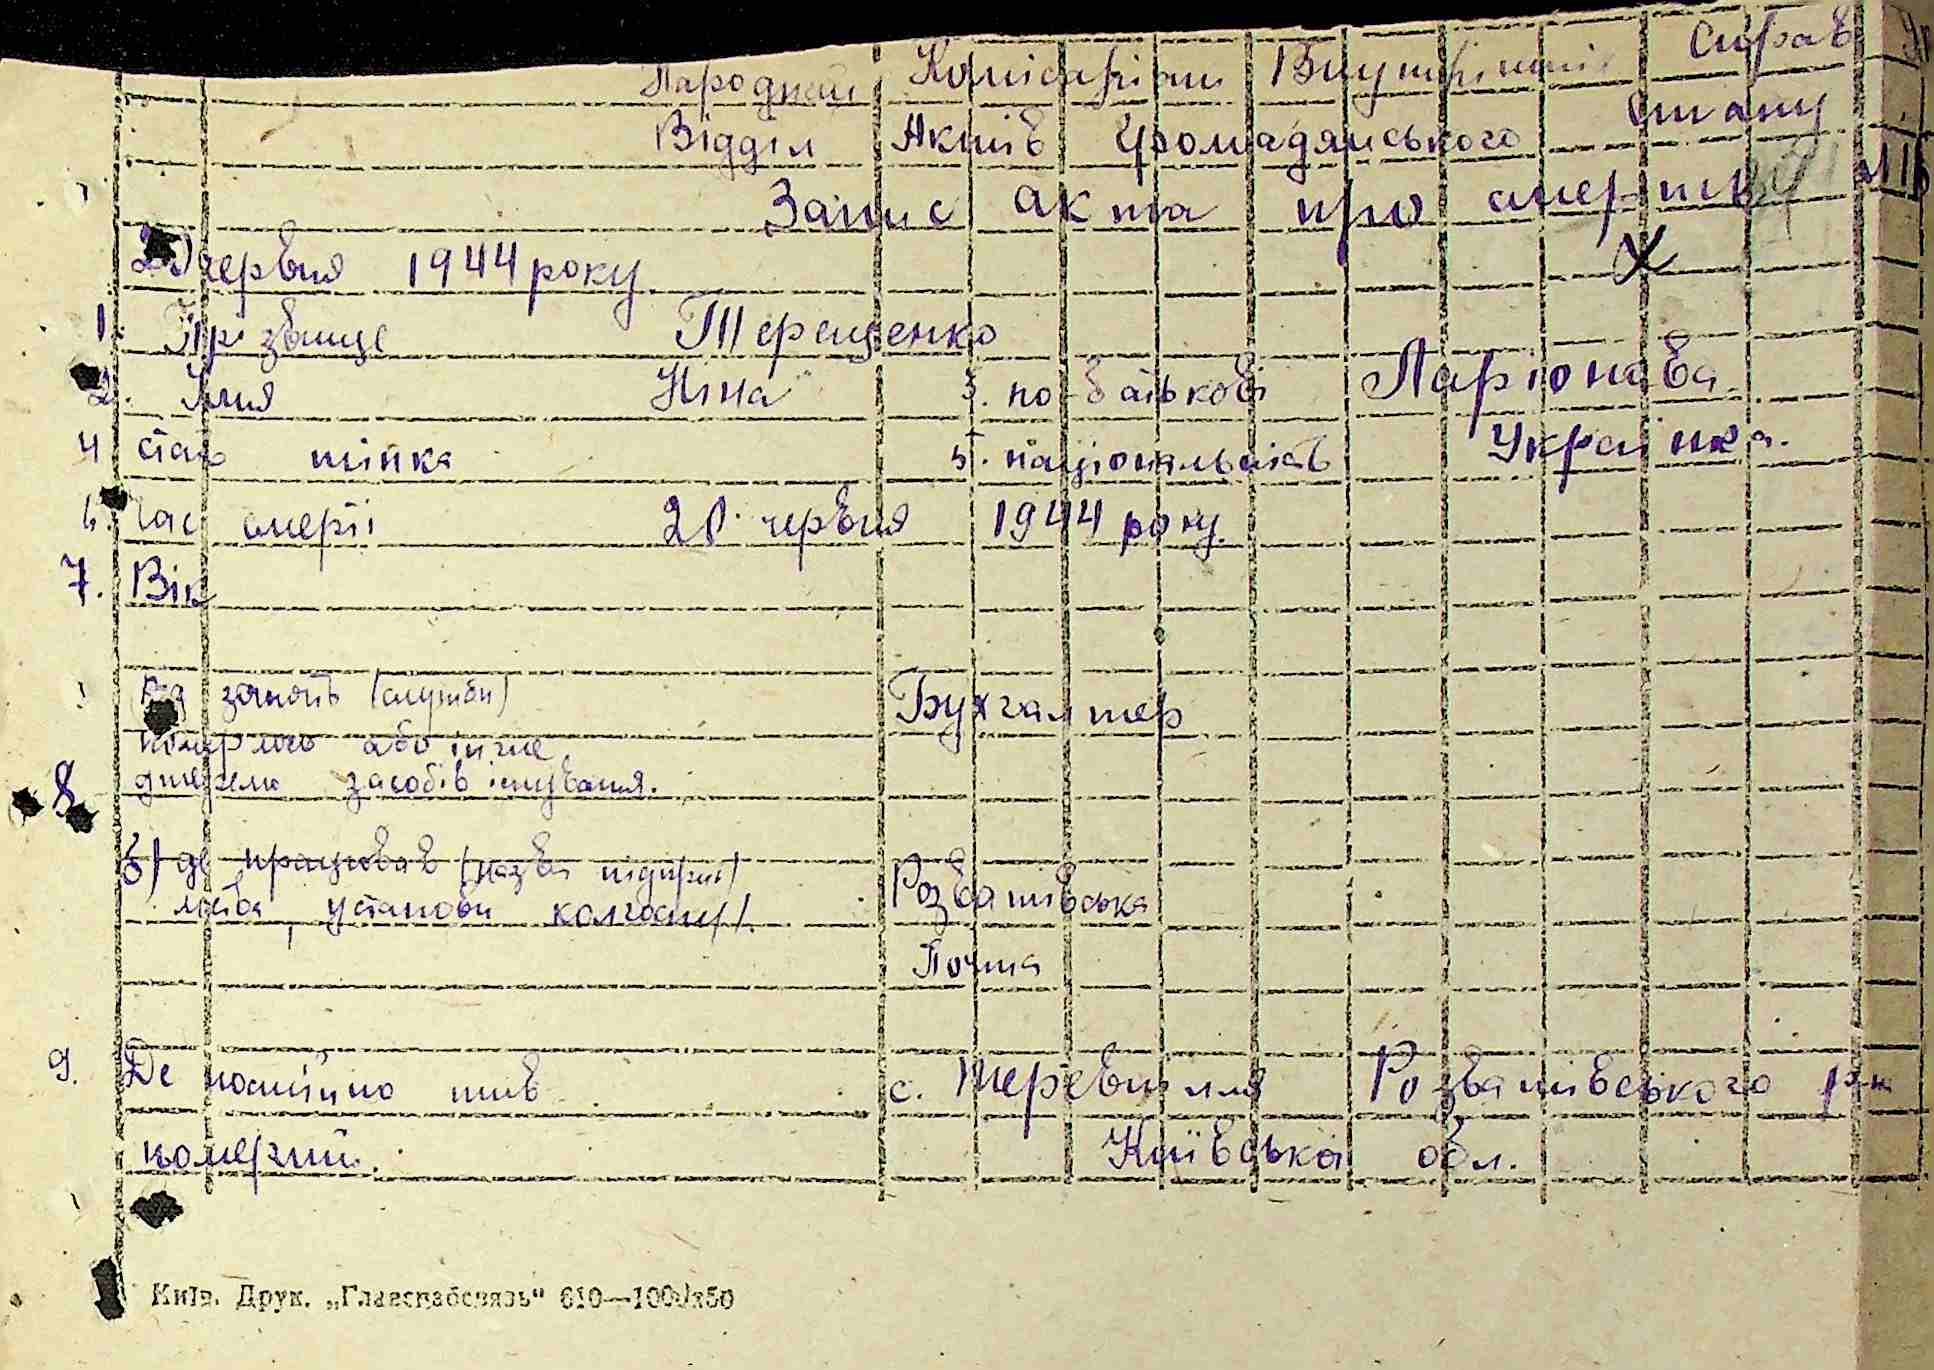 Народний Комісаріат Внутрішніх Справ
Відділ Актів Громадянського Стану
Запис акта про смерть
червня 1944 року
1. Прізвище Терещенко
2. Імя Ніна 3. по батькові Ларіонова
4 стать жінка 5. національність Українка.
6. Час смерті 20 червня 1944 року.
7. Вік
Рід занять (служби) Бухгалтер
померлого або інше
8 джерело засобів існування.
б) де працював (назва підприє
мства, установи колгоспу). Розважівська
Почта
9. Де постійно жив с. Розважівського р-н
померший. Київська обл.
Київ. Друк. „Главснабсвязь“ 610—1000х50